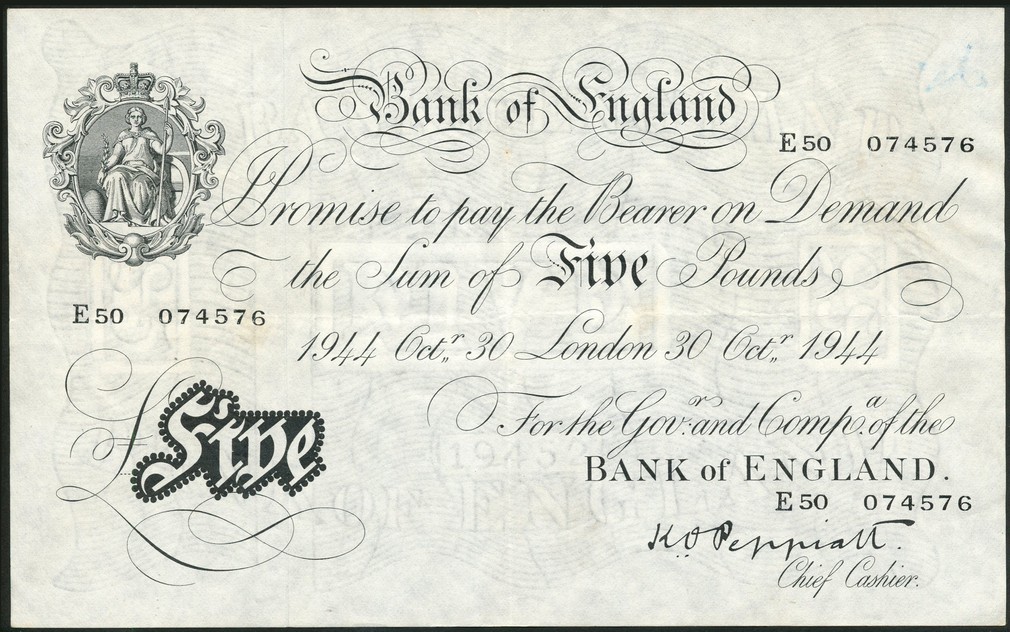 Bank of England
E50 074576
I Promise to pay the Bearer on Demand
the Sum of Five Pounds
E50 074576
1944 Octr 30 London 30 Octr 1944
£Five
For the Govr. and Compa. of the
BANK of ENGLAND.
E50 074576
K.O. Peppiatt.
Chief Cashier.